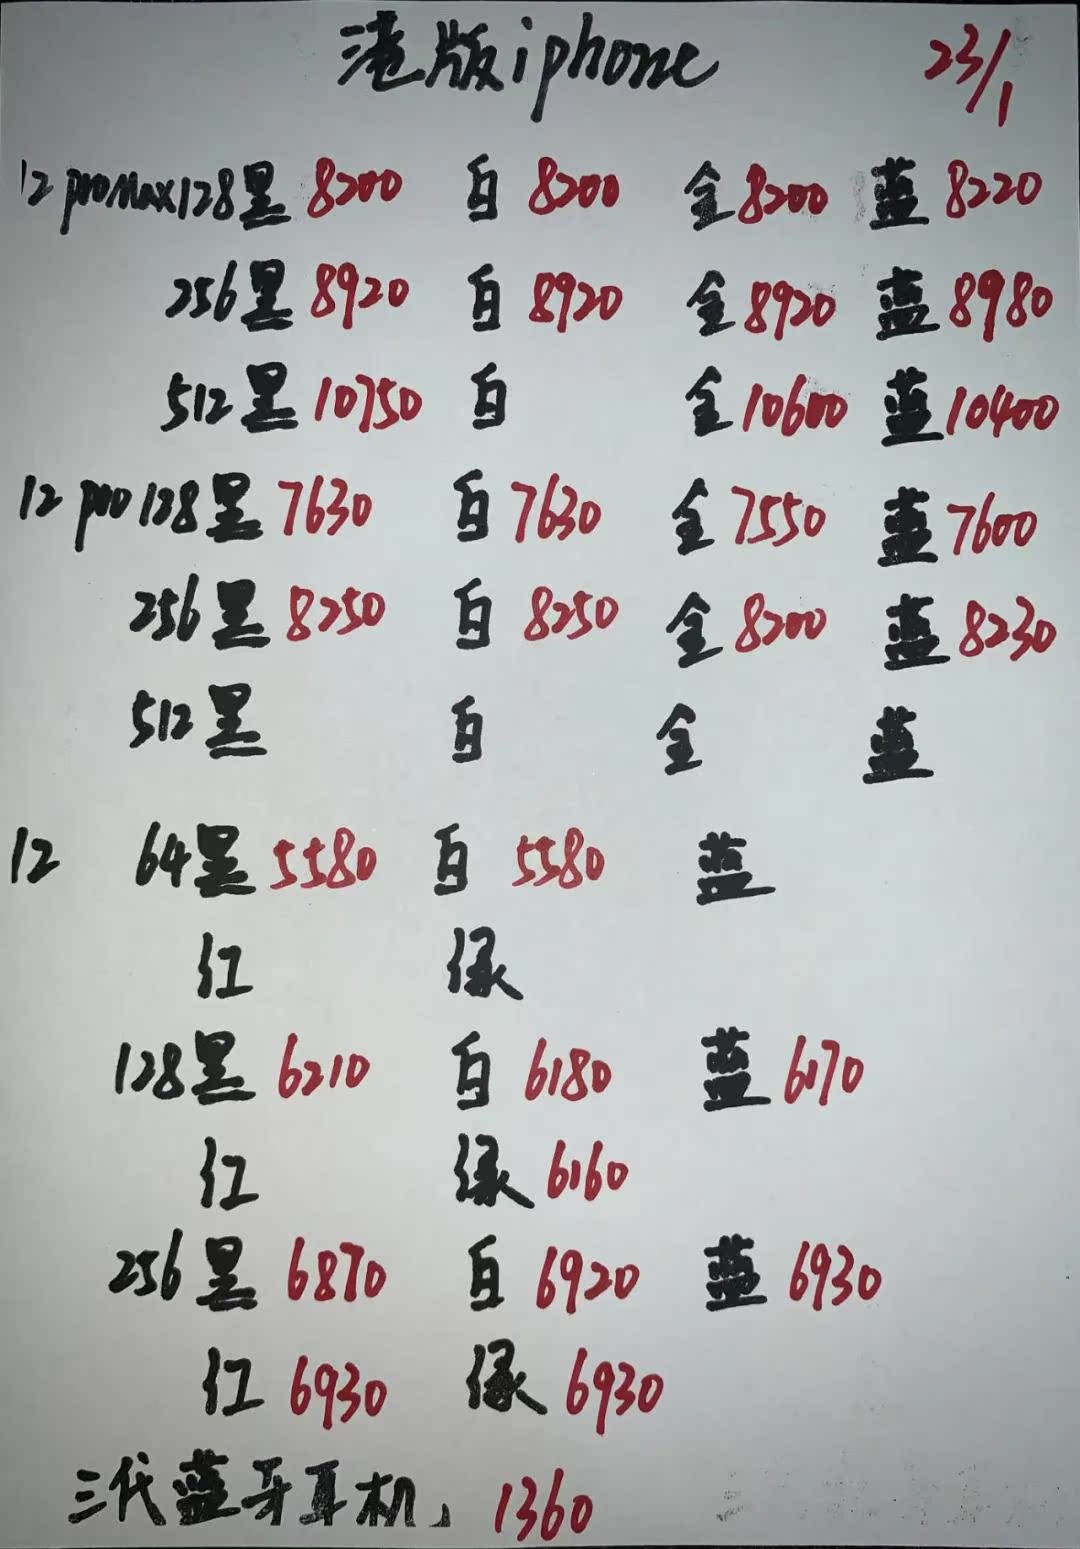 港版iphone 23/1
12 promax128黑 8200 白 8200 金 8200 蓝 8220
256黑 8920 白 8920 金 8920 蓝 8980
512黑 10750 白 金 10600 蓝 10400
12 pro 128黑 7630 白 7630 金 7550 蓝 7600
256黑 8250 白 8250 金 8200 蓝 8230
512黑 白 金 蓝
12 64黑 5580 白 5580 蓝
红 绿
128黑 6210 白 6180 蓝 6170
红 绿 6160
256黑 6870 白 6920 蓝 6930
红 6930 绿 6930
三代蓝牙耳机」 1360